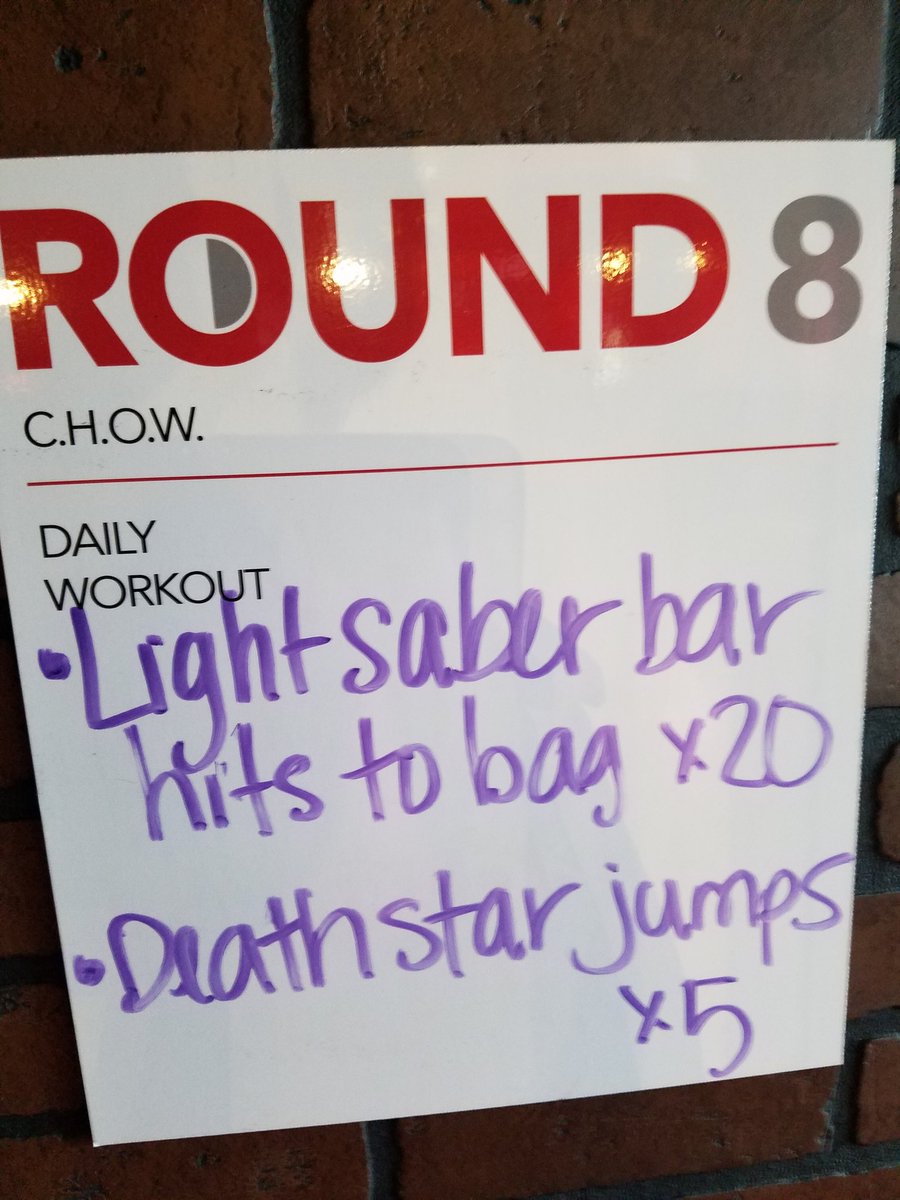 ROUND 8
C.H.O.W.
DAILY
WORKOUT
• Light saber bar
hits to bag x20
• Death star jumps
x5